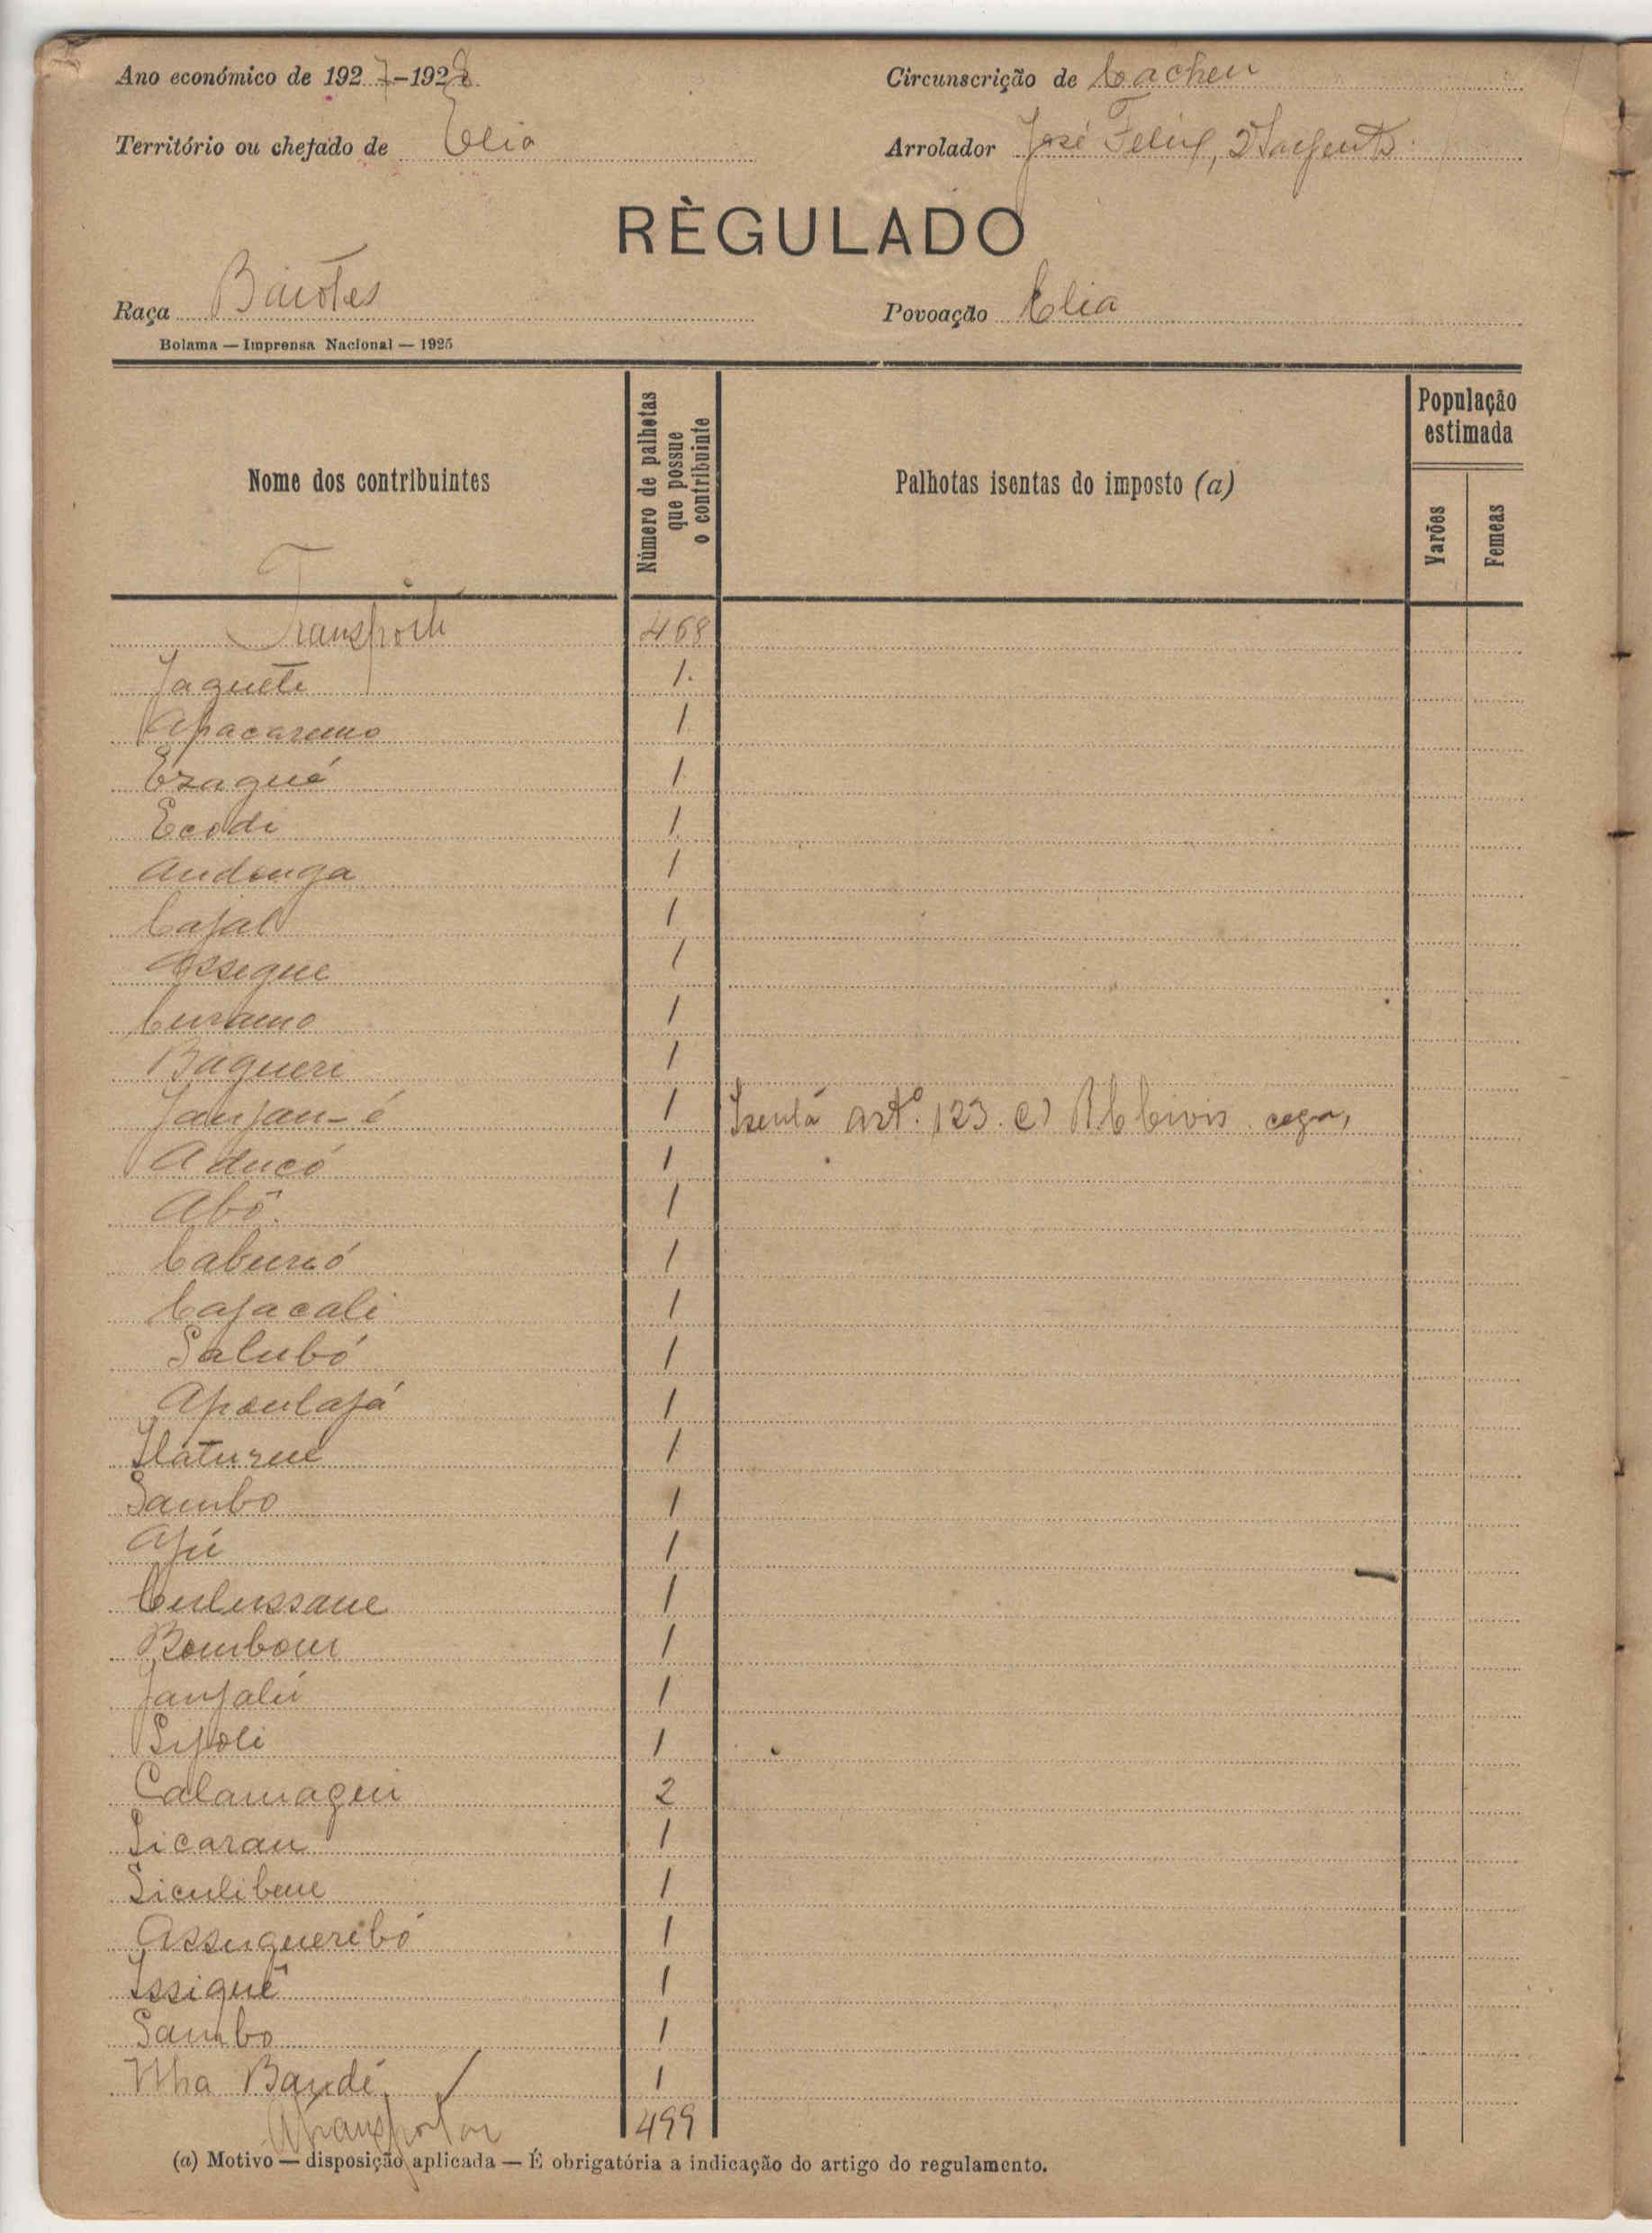 Ano económico de 1927-1928
Circunscrição de Cacheu
Território ou chefado de Elia
Arrolador José Felix, 2º Sargento
RÈGULADO
Raça Baiotes
Povoação Elia
Bolama — Imprensa Nacional — 1925
Nome dos contribuintes
Número de palhotas que possue o contribuinte
Palhotas isentas do imposto (a)
População estimada
Varões
Femeas
Transporte 468
Jaquete 1
Apacaremo 1
Ezaqué 1
Ecodi 1
Andonga 1
Cajal 1
Assegue 1
Curamo 1
Bagueri 1
Janjan-é 1 Isenta artº. 123. e) cega,
Aducó 1
Abô 1
Caburró 1
Cajacali 1
Salubó 1
Apoulajá 1
Ilaturue 1
Sambo 1
Ajú 1
Culussane 1
Bombom 1
Janjalú 1
Sipoli 1
Calamagui 2
Sicarau 1
Siculibene 1
Assugueribó 1
Issiguê 1
Sambo 1
Nha Bandé 1
A transportar 499
(a) Motivo — disposição aplicada — É obrigatória a indicação do artigo do regulamento.